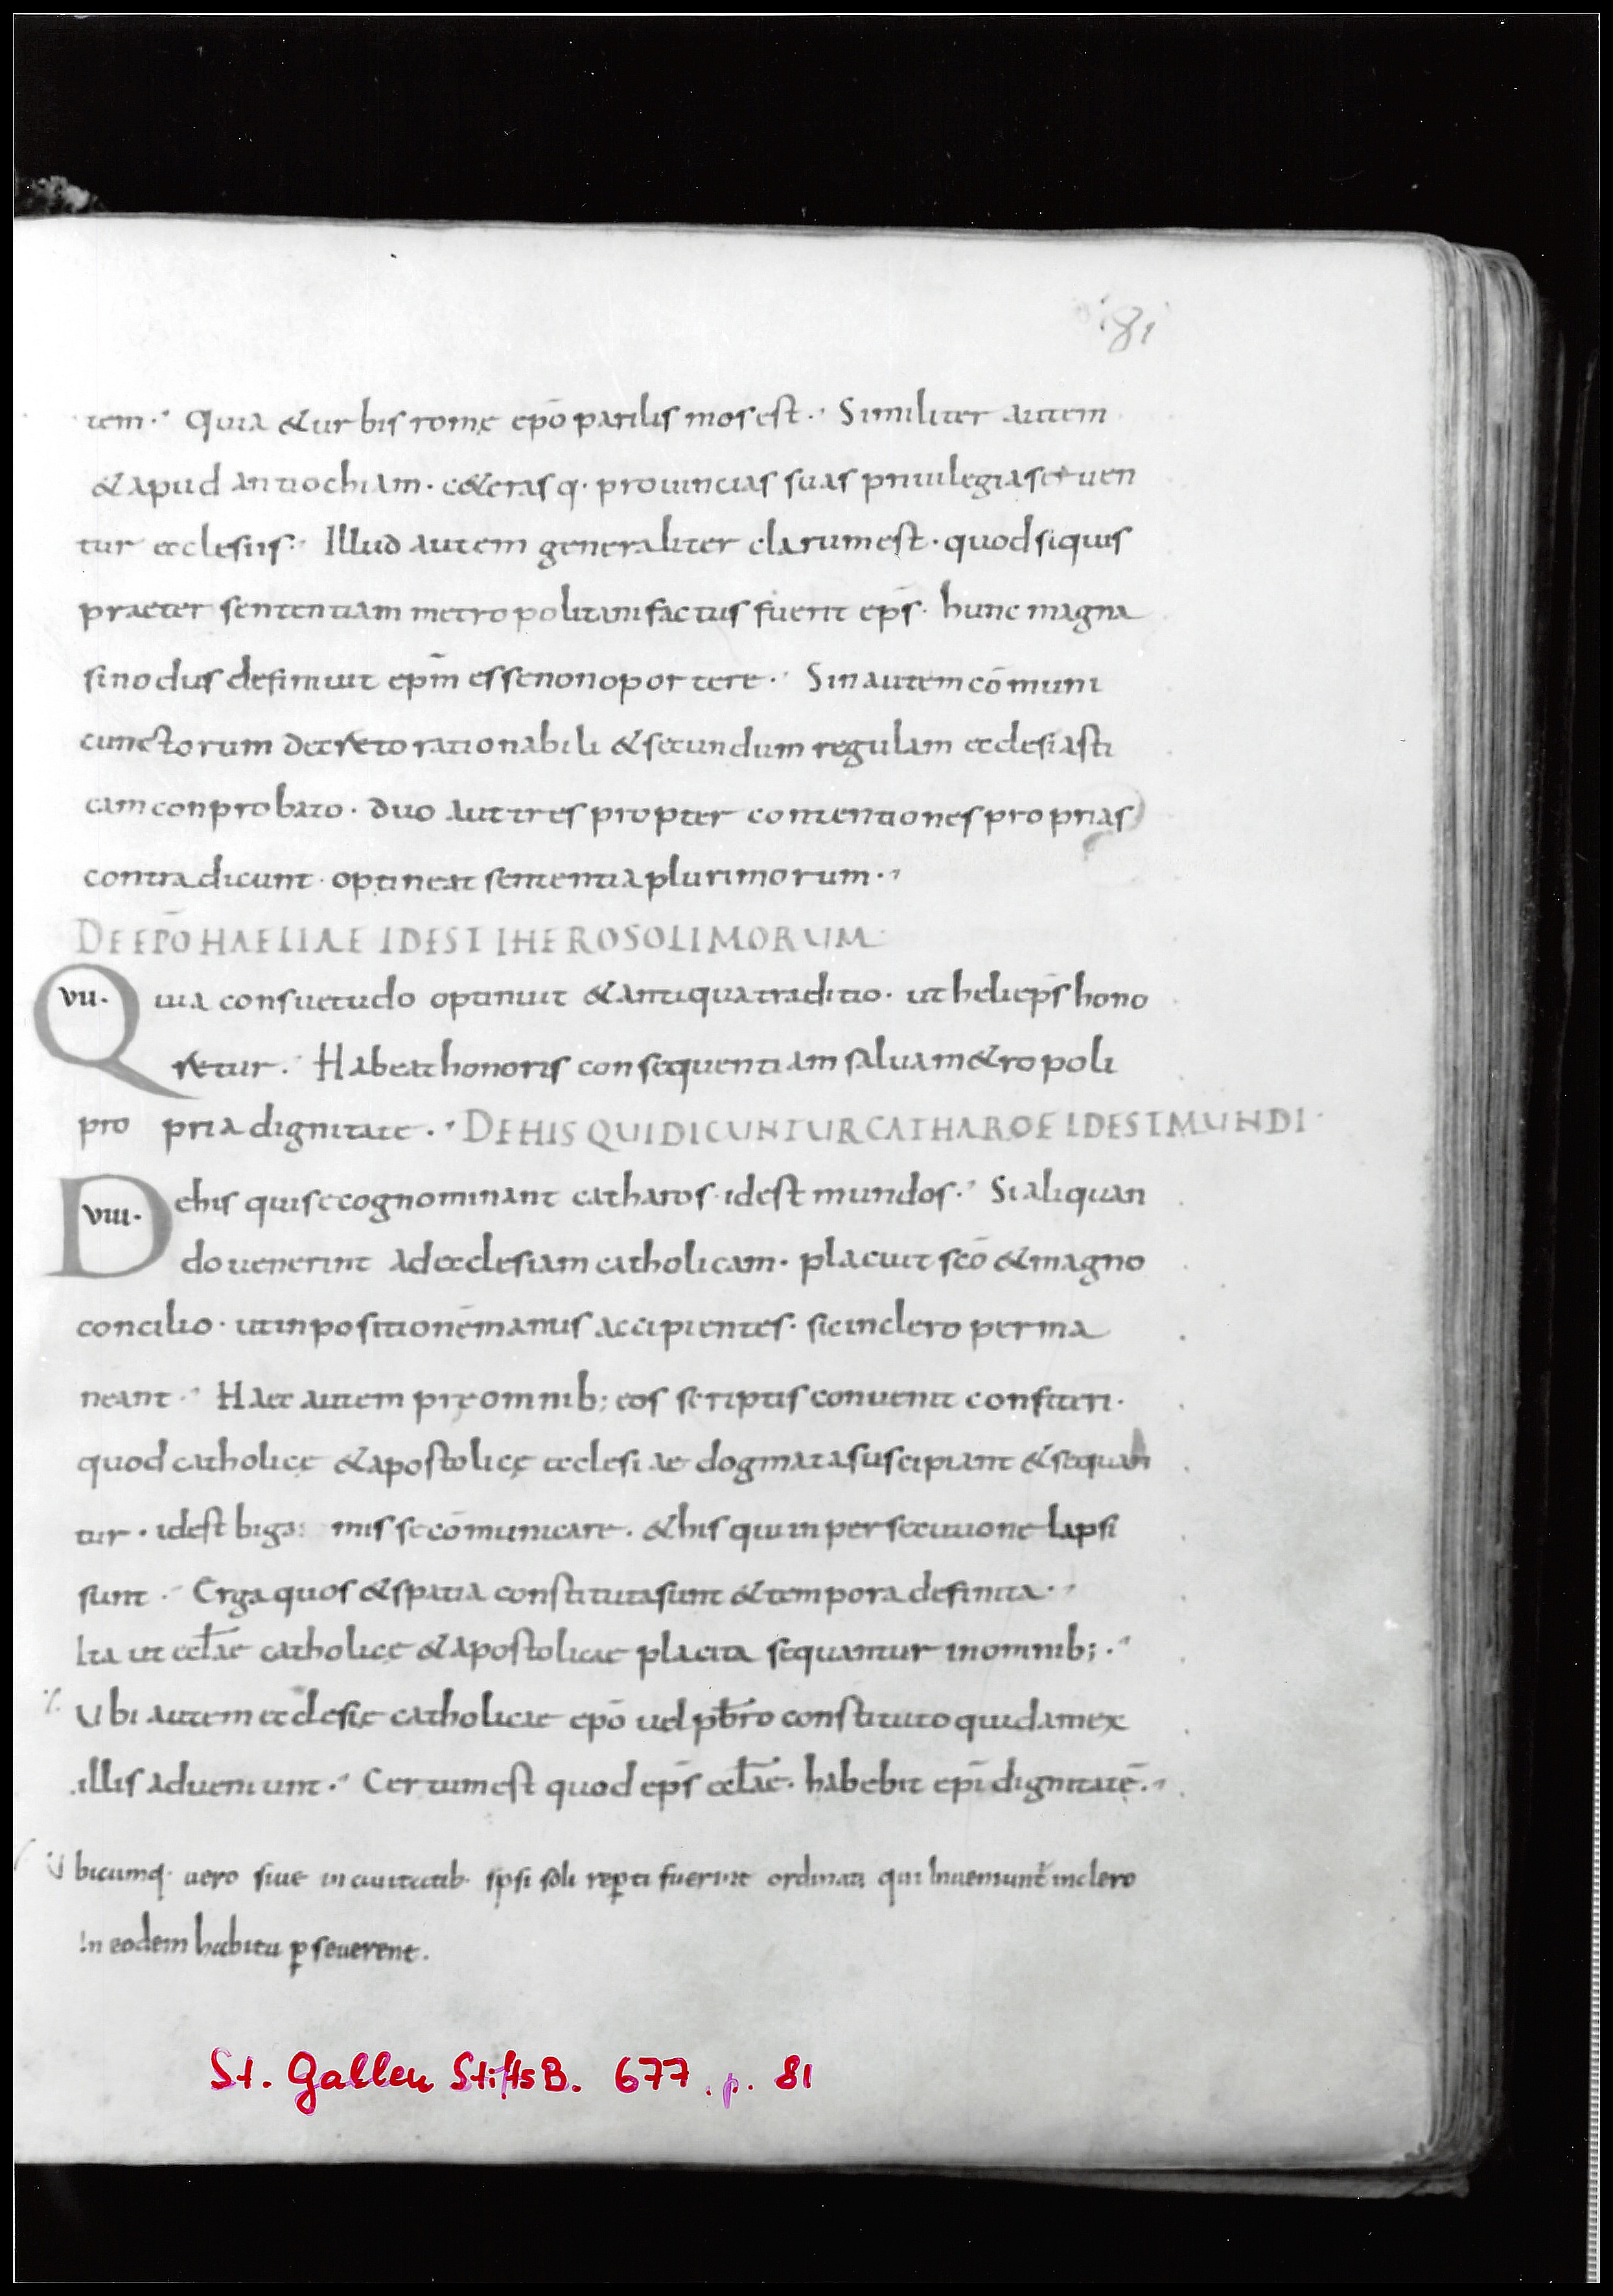 81
tem. Quia & urbis romę epō parilis mos est. Similiter autem
& apud antiochiam. c&erasq. prouincias suas priuilegia seruen
tur ecclesiis. Illud autem generaliter clarum est. quod siquis
praeter sententiam metropolitani factus fuerit ep̄s. hunc magna
sinodus definiuit ep̄m esse non oportere. Sin autem cōmuni
cunctorum decreto rationabili & secundum regulam ecclesiasti
cam conprobato. duo aut tres propter contentiones proprias
contradicunt. optineat sententia plurimorum.
DE EP̄O HAELIAE IDEST IHEROSOLIMORUM
VII. Quia consuetudo optinuit & antiqua traditio. ut heli ep̄s hono
r&ur. Habeat honoris consequentiam salua m&ropoli
pro pria dignitate. DE HIS QUI DICUNTUR CATHAROE IDEST MUNDI
VIII. De his qui se cognominant catharos. idest mundos. Si aliquan
do uenerint ad ecclesiam catholicam. placuit scō & magno
concilio. ut inpositionēmanus accipientes. sic in clero perma
neant. Haec autem prę omnib; eos scriptis conuenit confiteri.
quod catholicę & apostolicę ecclesiae dogmata suscipiant & sequan
tur. idest biga mis se cōmunicare. & his qui in persecutione lapsi
sunt. Erga quos & spatia constituta sunt & tempora definita.
Ita ut eccl̄ae catholicę & apostolicae placita sequantur in omnib;.
Ubi autem ecclesię catholicae epō uel pb̄ro constituto quidam ex
illis adueniunt. Certum est quod ep̄s eccl̄ae. habebit epī dignitatē.
Ubicumq. uero siue in ciuitatib. ipsi soli rep̱ti fuerint ordinati qui Inueniunt̄ in clero
In eodem habitu p̱seuerent.
St. Gallen StiftsB. 677. p. 81